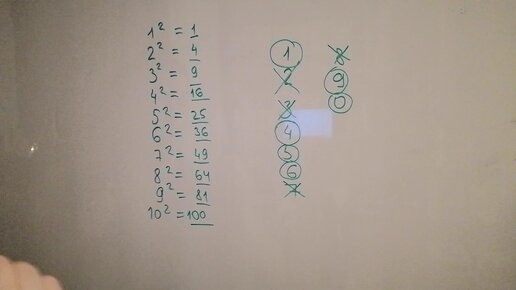 1² = 1
2² = 4
3² = 9
4² = 16
5² = 25
6² = 36
7² = 49
8² = 64
9² = 81
10² = 100
1
2
3
4
5
6
7
8
9
0